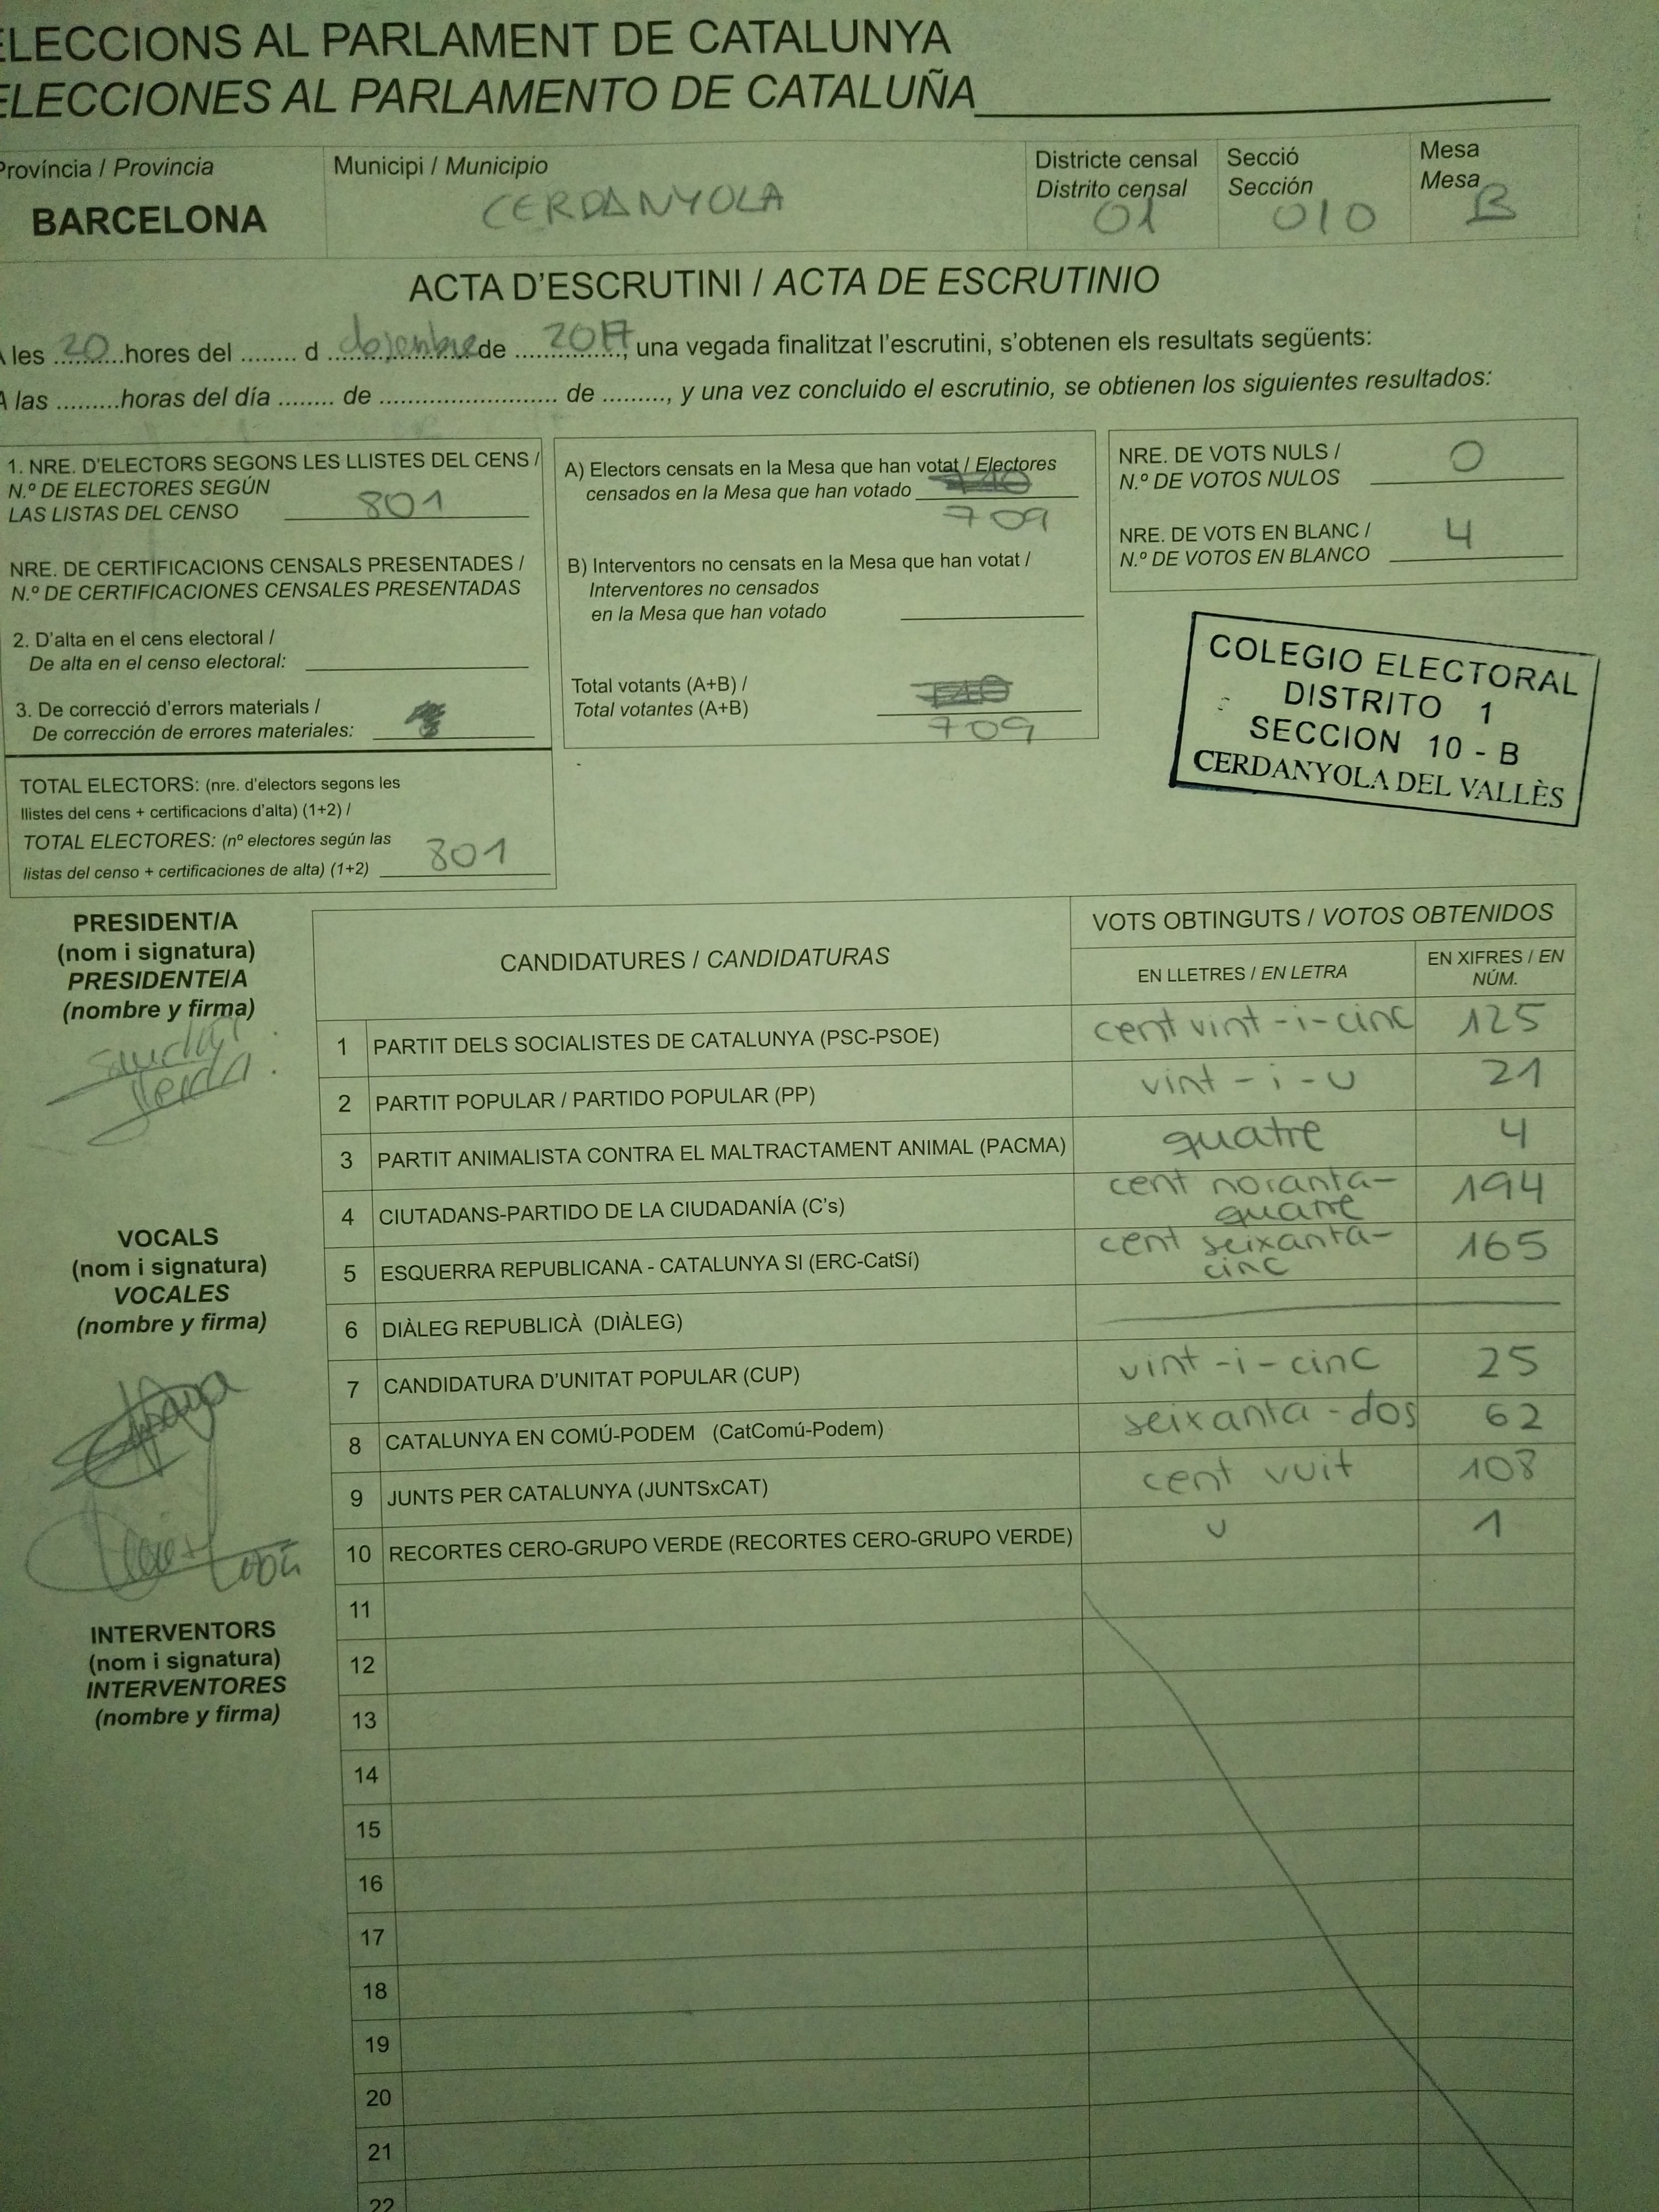 ELECCIONS AL PARLAMENT DE CATALUNYA
ELECCIONES AL PARLAMENTO DE CATALUÑA
Província / Provincia
BARCELONA
Municipi / Municipio
CERDANYOLA
Districte censal
Distrito censal
01
Secció
Sección
010
Mesa
Mesa
B
ACTA D'ESCRUTINI / ACTA DE ESCRUTINIO
A les 20 hores del ........ d ........ de 2017, una vegada finalitzat l'escrutini, s'obtenen els resultats següents:
A las .........horas del día ........ de .......................... de ........., y una vez concluido el escrutinio, se obtienen los siguientes resultados:
1. NRE. D'ELECTORS SEGONS LES LLISTES DEL CENS /
N.º DE ELECTORES SEGÚN
LAS LISTAS DEL CENSO 801
NRE. DE CERTIFICACIONS CENSALS PRESENTADES /
N.º DE CERTIFICACIONES CENSALES PRESENTADAS
2. D'alta en el cens electoral /
De alta en el censo electoral:
3. De correcció d'errors materials /
De corrección de errores materiales:
TOTAL ELECTORS: (nre. d'electors segons les
llistes del cens + certificacions d'alta) (1+2) /
TOTAL ELECTORES: (nº electores según las
listas del censo + certificaciones de alta) (1+2) 801
A) Electors censats en la Mesa que han votat / Electores
censados en la Mesa que han votado 710
709
B) Interventors no censats en la Mesa que han votat /
Interventores no censados
en la Mesa que han votado
Total votants (A+B) /
Total votantes (A+B) 710
709
NRE. DE VOTS NULS /
N.º DE VOTOS NULOS 0
NRE. DE VOTS EN BLANC /
N.º DE VOTOS EN BLANCO 4
COLEGIO ELECTORAL
DISTRITO 1
SECCION 10 - B
CERDANYOLA DEL VALLÈS
PRESIDENT/A
(nom i signatura)
PRESIDENTE/A
(nombre y firma)
VOCALS
(nom i signatura)
VOCALES
(nombre y firma)
INTERVENTORS
(nom i signatura)
INTERVENTORES
(nombre y firma)
CANDIDATURES / CANDIDATURAS
VOTS OBTINGUTS / VOTOS OBTENIDOS
EN LLETRES / EN LETRA
EN XIFRES / EN
NÚM.
1 PARTIT DELS SOCIALISTES DE CATALUNYA (PSC-PSOE) cent vint-i-cinc 125
2 PARTIT POPULAR / PARTIDO POPULAR (PP) vint-i-u 21
3 PARTIT ANIMALISTA CONTRA EL MALTRACTAMENT ANIMAL (PACMA) quatre 4
4 CIUTADANS-PARTIDO DE LA CIUDADANÍA (C's) cent noranta-quatre 194
5 ESQUERRA REPUBLICANA - CATALUNYA SI (ERC-CatSí) cent seixanta-cinc 165
6 DIÀLEG REPUBLICÀ (DIÀLEG)
7 CANDIDATURA D'UNITAT POPULAR (CUP) vint-i-cinc 25
8 CATALUNYA EN COMÚ-PODEM (CatComú-Podem) seixanta-dos 62
9 JUNTS PER CATALUNYA (JUNTSxCAT) cent vuit 108
10 RECORTES CERO-GRUPO VERDE (RECORTES CERO-GRUPO VERDE) u 1
11
12
13
14
15
16
17
18
19
20
21
22